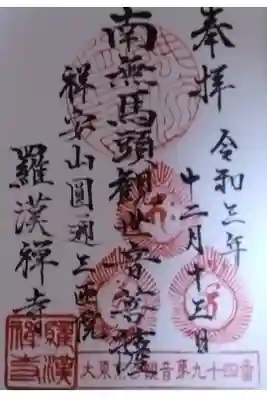 奉拝
令和三年
十二月十三日
南無馬頭観世音菩薩
祥安山圓通三匝院
羅漢禅寺
大東京百観音第九十四番
羅漢禅寺